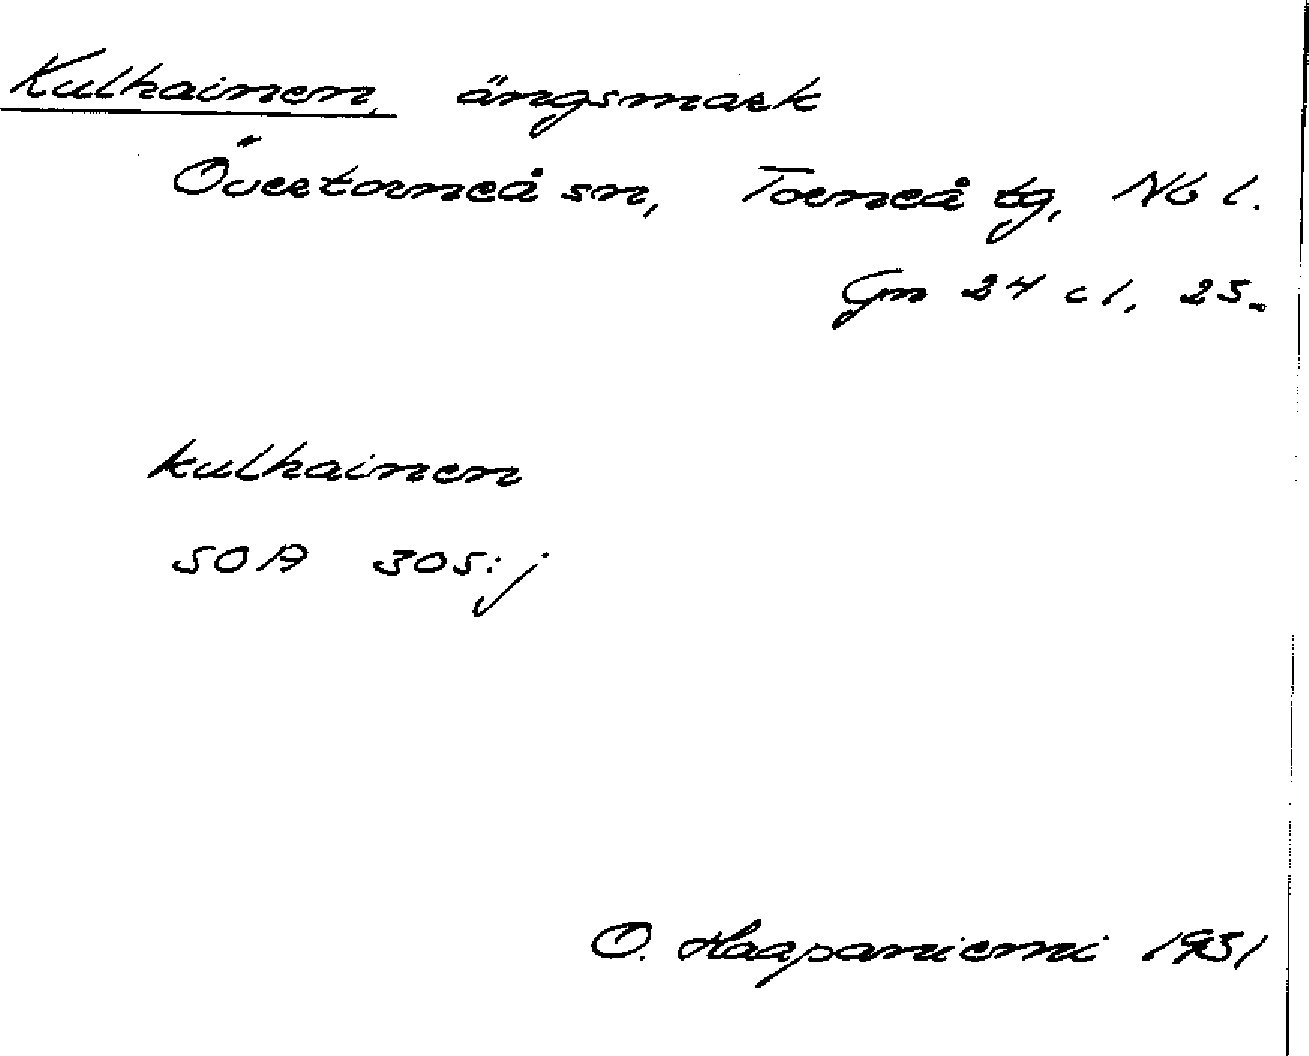 Kulhainen, ängsmark
Övertorneå sn, Torneå tg, Nb l.
Gn 24 c 1, 25.
kulhainen
SOA 305:j
O. Haapaniemi 1931